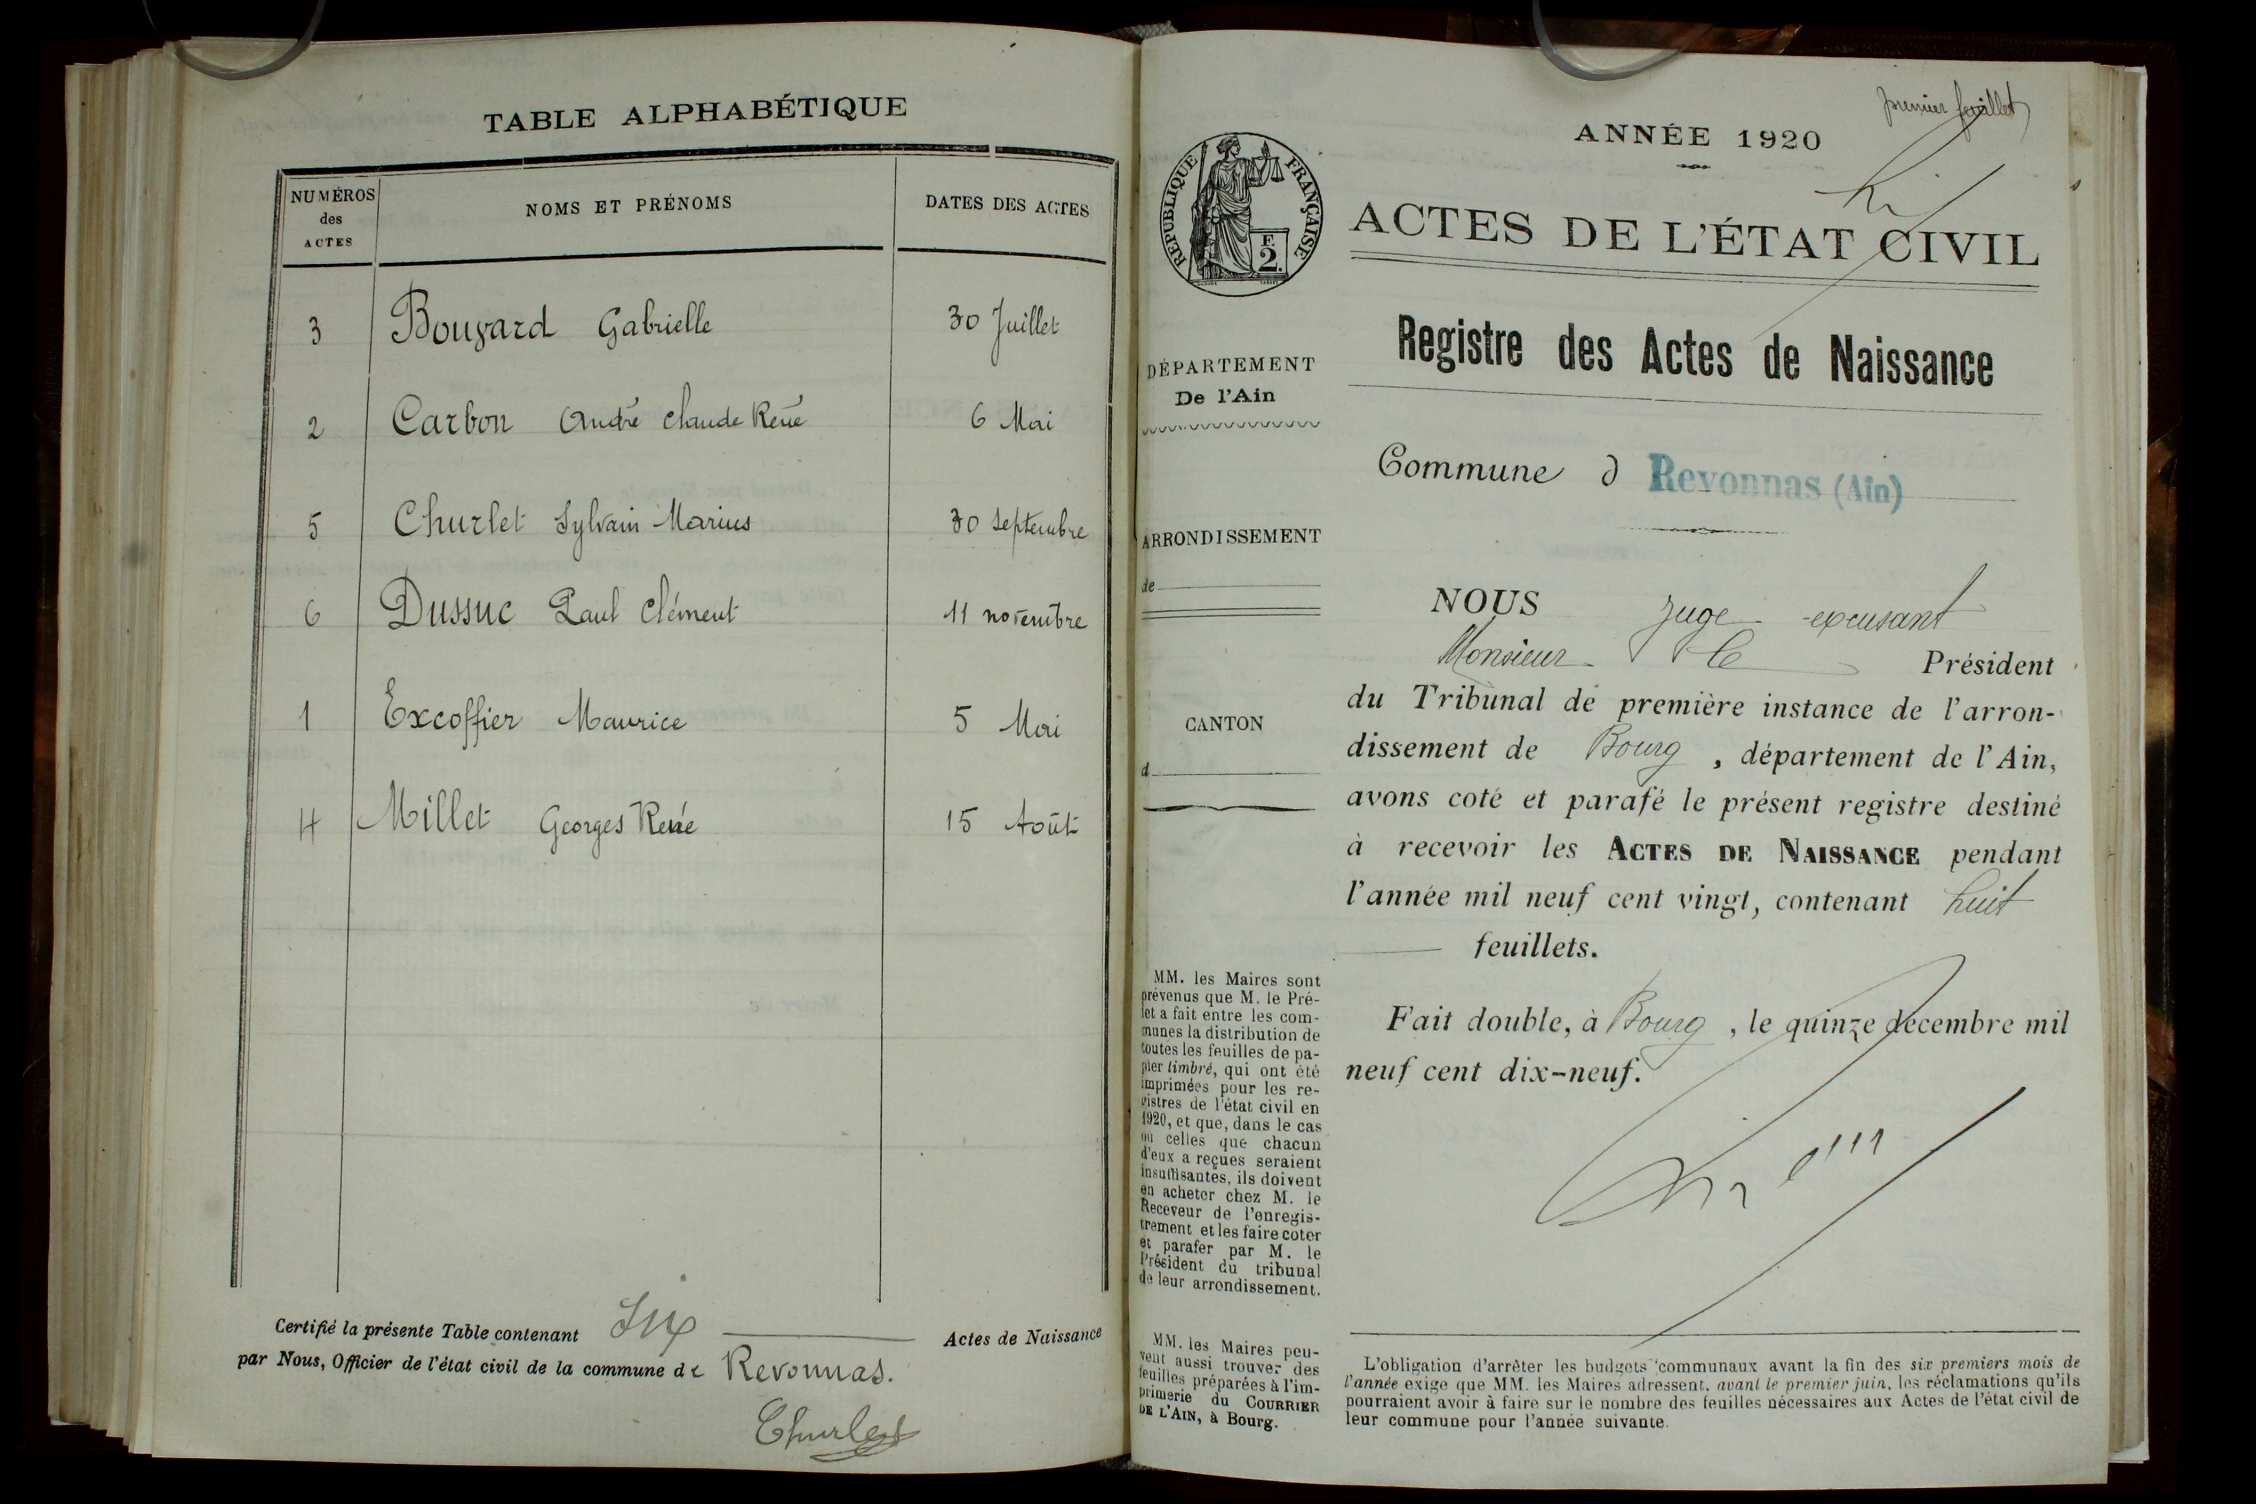 TABLE ALPHABÉTIQUE
NUMÉROS des ACTES
NOMS ET PRÉNOMS
DATES DES ACTES
3 Bouvard Gabrielle 30 Juillet
2 Carbon André Claude René 6 Mai
5 Churlet Sylvain Marius 30 septembre
6 Dussuc Paul Clément 11 novembre
1 Excoffier Maurice 5 Mai
4 Millet Georges René 15 Août
Certifié la présente Table contenant Six Actes de Naissance
par Nous, Officier de l'état civil de la commune de Revonnas.
Churlet
premier feuillet
ANNÉE 1920
RÉPUBLIQUE FRANÇAISE
F. 2.
ACTES DE L'ÉTAT CIVIL
Registre des Actes de Naissance
DÉPARTEMENT
De l'Ain
Commune d Revonnas (Ain)
ARRONDISSEMENT
de
CANTON
d
NOUS Juge excusant
Monsieur le Président
du Tribunal de première instance de l'arron-
dissement de Bourg, département de l'Ain,
avons coté et parafé le présent registre destiné
à recevoir les ACTES DE NAISSANCE pendant
l'année mil neuf cent vingt, contenant huit
feuillets.
Fait double, à Bourg, le quinze décembre mil
neuf cent dix-neuf.
MM. les Maires sont
prévenus que M. le Pré-
fet a fait entre les com-
munes la distribution de
toutes les feuilles de pa-
pier timbré, qui ont été
imprimées pour les re-
gistres de l'état civil en
1920, et que, dans le cas
où celles que chacun
d'eux a reçues seraient
insuffisantes, ils doivent
en acheter chez M. le
Receveur de l'enregis-
trement et les faire coter
et parafer par M. le
Président du tribunal
de leur arrondissement.
MM. les Maires peu-
vent aussi trouver des
feuilles préparées à l'im-
primerie du COURRIER
DE L'AIN, à Bourg.
L'obligation d'arrêter les budgets communaux avant la fin des six premiers mois de
l'année exige que MM. les Maires adressent, avant le premier juin, les réclamations qu'ils
pourraient avoir à faire sur le nombre des feuilles nécessaires aux Actes de l'état civil de
leur commune pour l'année suivante.